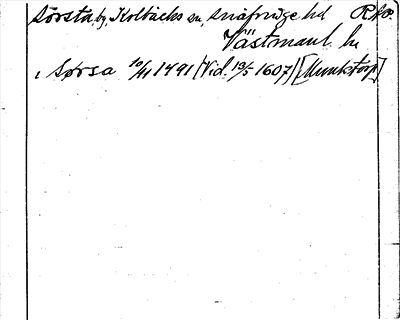 Sörsta, by, Kolbäcks sn, Snäfringe hd RAP.
Västmanl. län
i Sørsa 10/11 1491 (Vid. 13/5 1607) [Munktorp]